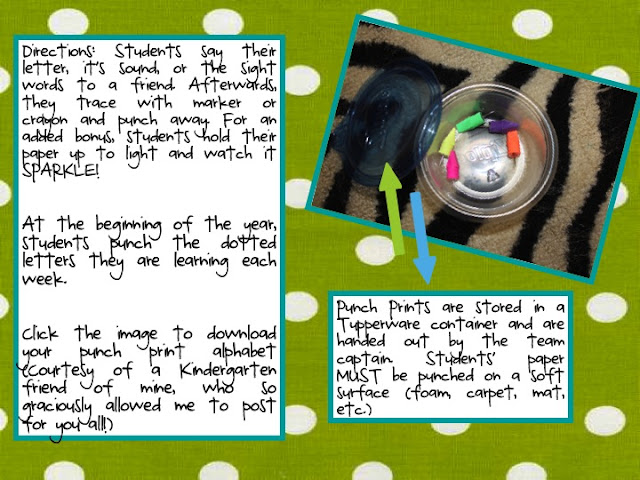 Directions: Students say their
letter, it's sound, or the sight
words to a friend. Afterwards,
they trace with marker or
crayon and punch away. For an
added bonus, students hold their
paper up to light and watch it
SPARKLE!
At the beginning of the year,
students punch the dotted
letters they are learning each
week.
Click the image to download
your punch print alphabet
(courtesy of a Kindergarten
friend of mine, who so
graciously allowed me to post
for you all!)
Punch Prints are stored in a
Tupperware container and are
handed out by the team
captain. Students' paper
MUST be punched on a soft
surface (foam, carpet, mat,
etc.)